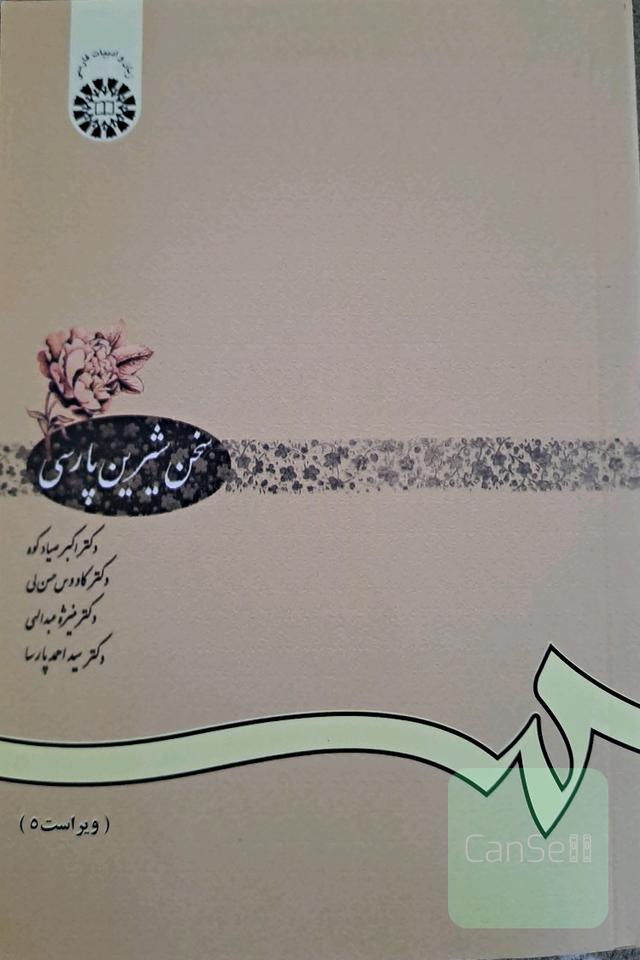 زبان و ادبیات فارسی
سخن شیرین پارسی
دکتر اکبر صیادکوه
دکتر کاووس حسن‌لی
دکتر منیژه عبدالهی
دکتر سید احمد پارسا
(ویراست ۵)
CanSell